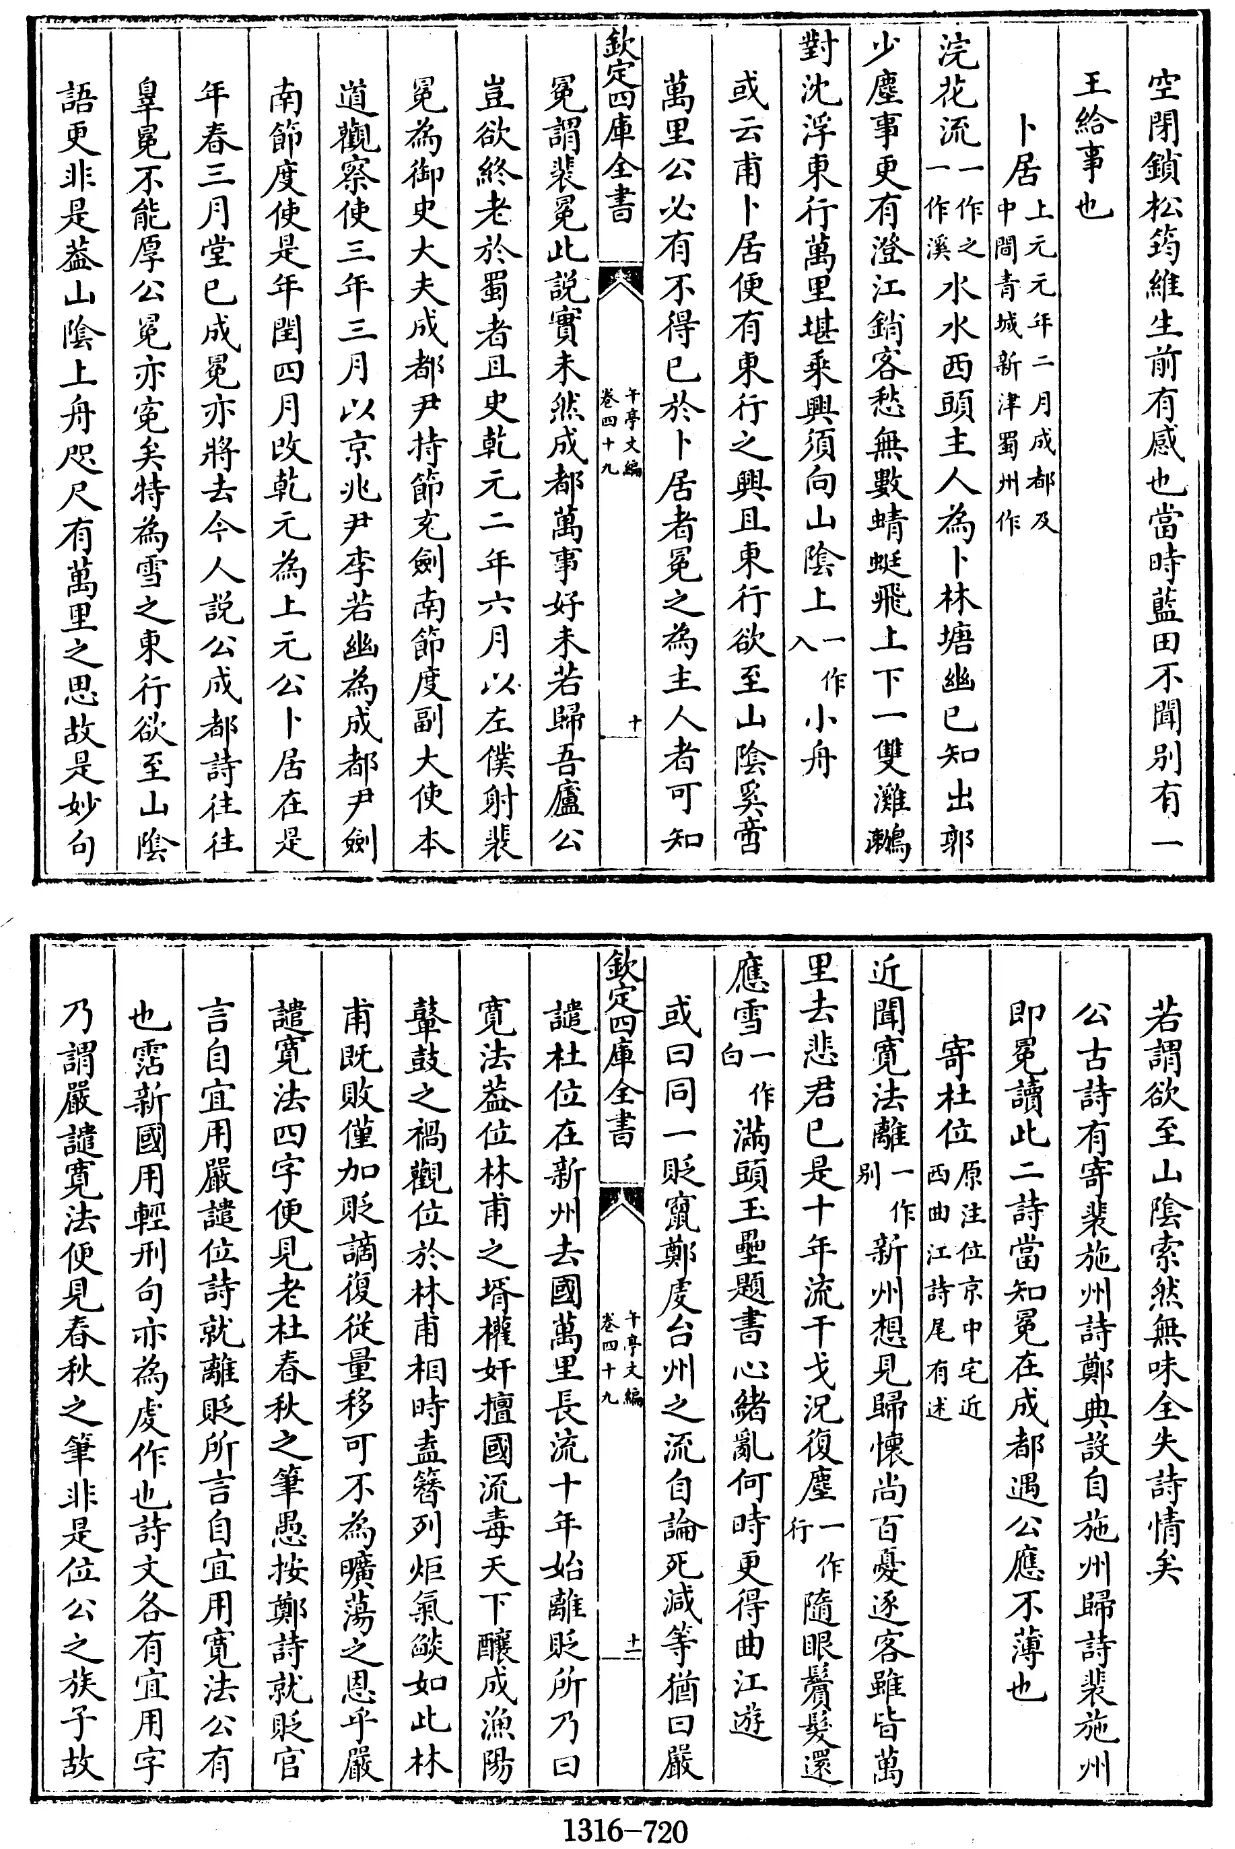 空閉鎖松筠維生前有感也當時藍田不聞別有一
王給事也
卜居上元元年二月成都及中間青城新津蜀州作
浣花流一作之一作溪水水西頭主人為卜林塘幽已知出郭
少塵事更有澄江銷客愁無數蜻蜓飛上下一雙㶉鶒
對沈浮東行萬里堪乘興須向山陰上一作入小舟
或云甫卜居便有東行之興且東行欲至山陰奚啻
萬里公必有不得已於卜居者冕之為主人者可知
欽定四庫全書
午亭文編
卷四十九
十
冕謂裴冕此說實未然成都萬事好未若歸吾廬公
豈欲終老於蜀者且史乾元二年六月以左僕射裴
冕為御史大夫成都尹持節充劍南節度副大使本
道觀察使三年三月以京兆尹李若幽為成都尹劍
南節度使是年閏四月改乾元為上元公卜居在是
年春三月堂已成冕亦將去今人說公成都詩往往
辠冕不能厚公冕亦寃矣特為雪之東行欲至山陰
語更非是葢山陰上舟咫尺有萬里之思故是妙句
若謂欲至山陰索然無味全失詩情矣
公古詩有寄裴施州詩鄭典設自施州歸詩裴施州
即冕讀此二詩當知冕在成都遇公應不薄也
寄杜位原注位京中宅近西曲江詩尾有述
近聞寬法離一作別新州想見歸懷尚百憂逐客雖皆萬
里去悲君已是十年流干戈況復塵一作行隨眼鬢髮還
應雪一作白滿頭玉壘題書心緒亂何時更得曲江遊
或曰同一貶竄鄭虔台州之流自論死減等猶曰嚴
欽定四庫全書
午亭文編
卷四十九
十一
譴杜位在新州去國萬里長流十年始離貶所乃曰
寬法葢位林甫之壻權奸擅國流毒天下釀成漁陽
鼙鼓之禍觀位於林甫相時盍簪列炬氣燄如此林
甫既敗僅加貶謫復從量移可不為曠蕩之恩乎嚴
譴寬法四字便見老杜春秋之筆愚按鄭詩就貶官
言自宜用嚴譴位詩就離貶所言自宜用寬法公有
也霑新國用輕刑句亦為虔作也詩文各有宜用字
乃謂嚴譴寬法便見春秋之筆非是位公之族子故
1316-720